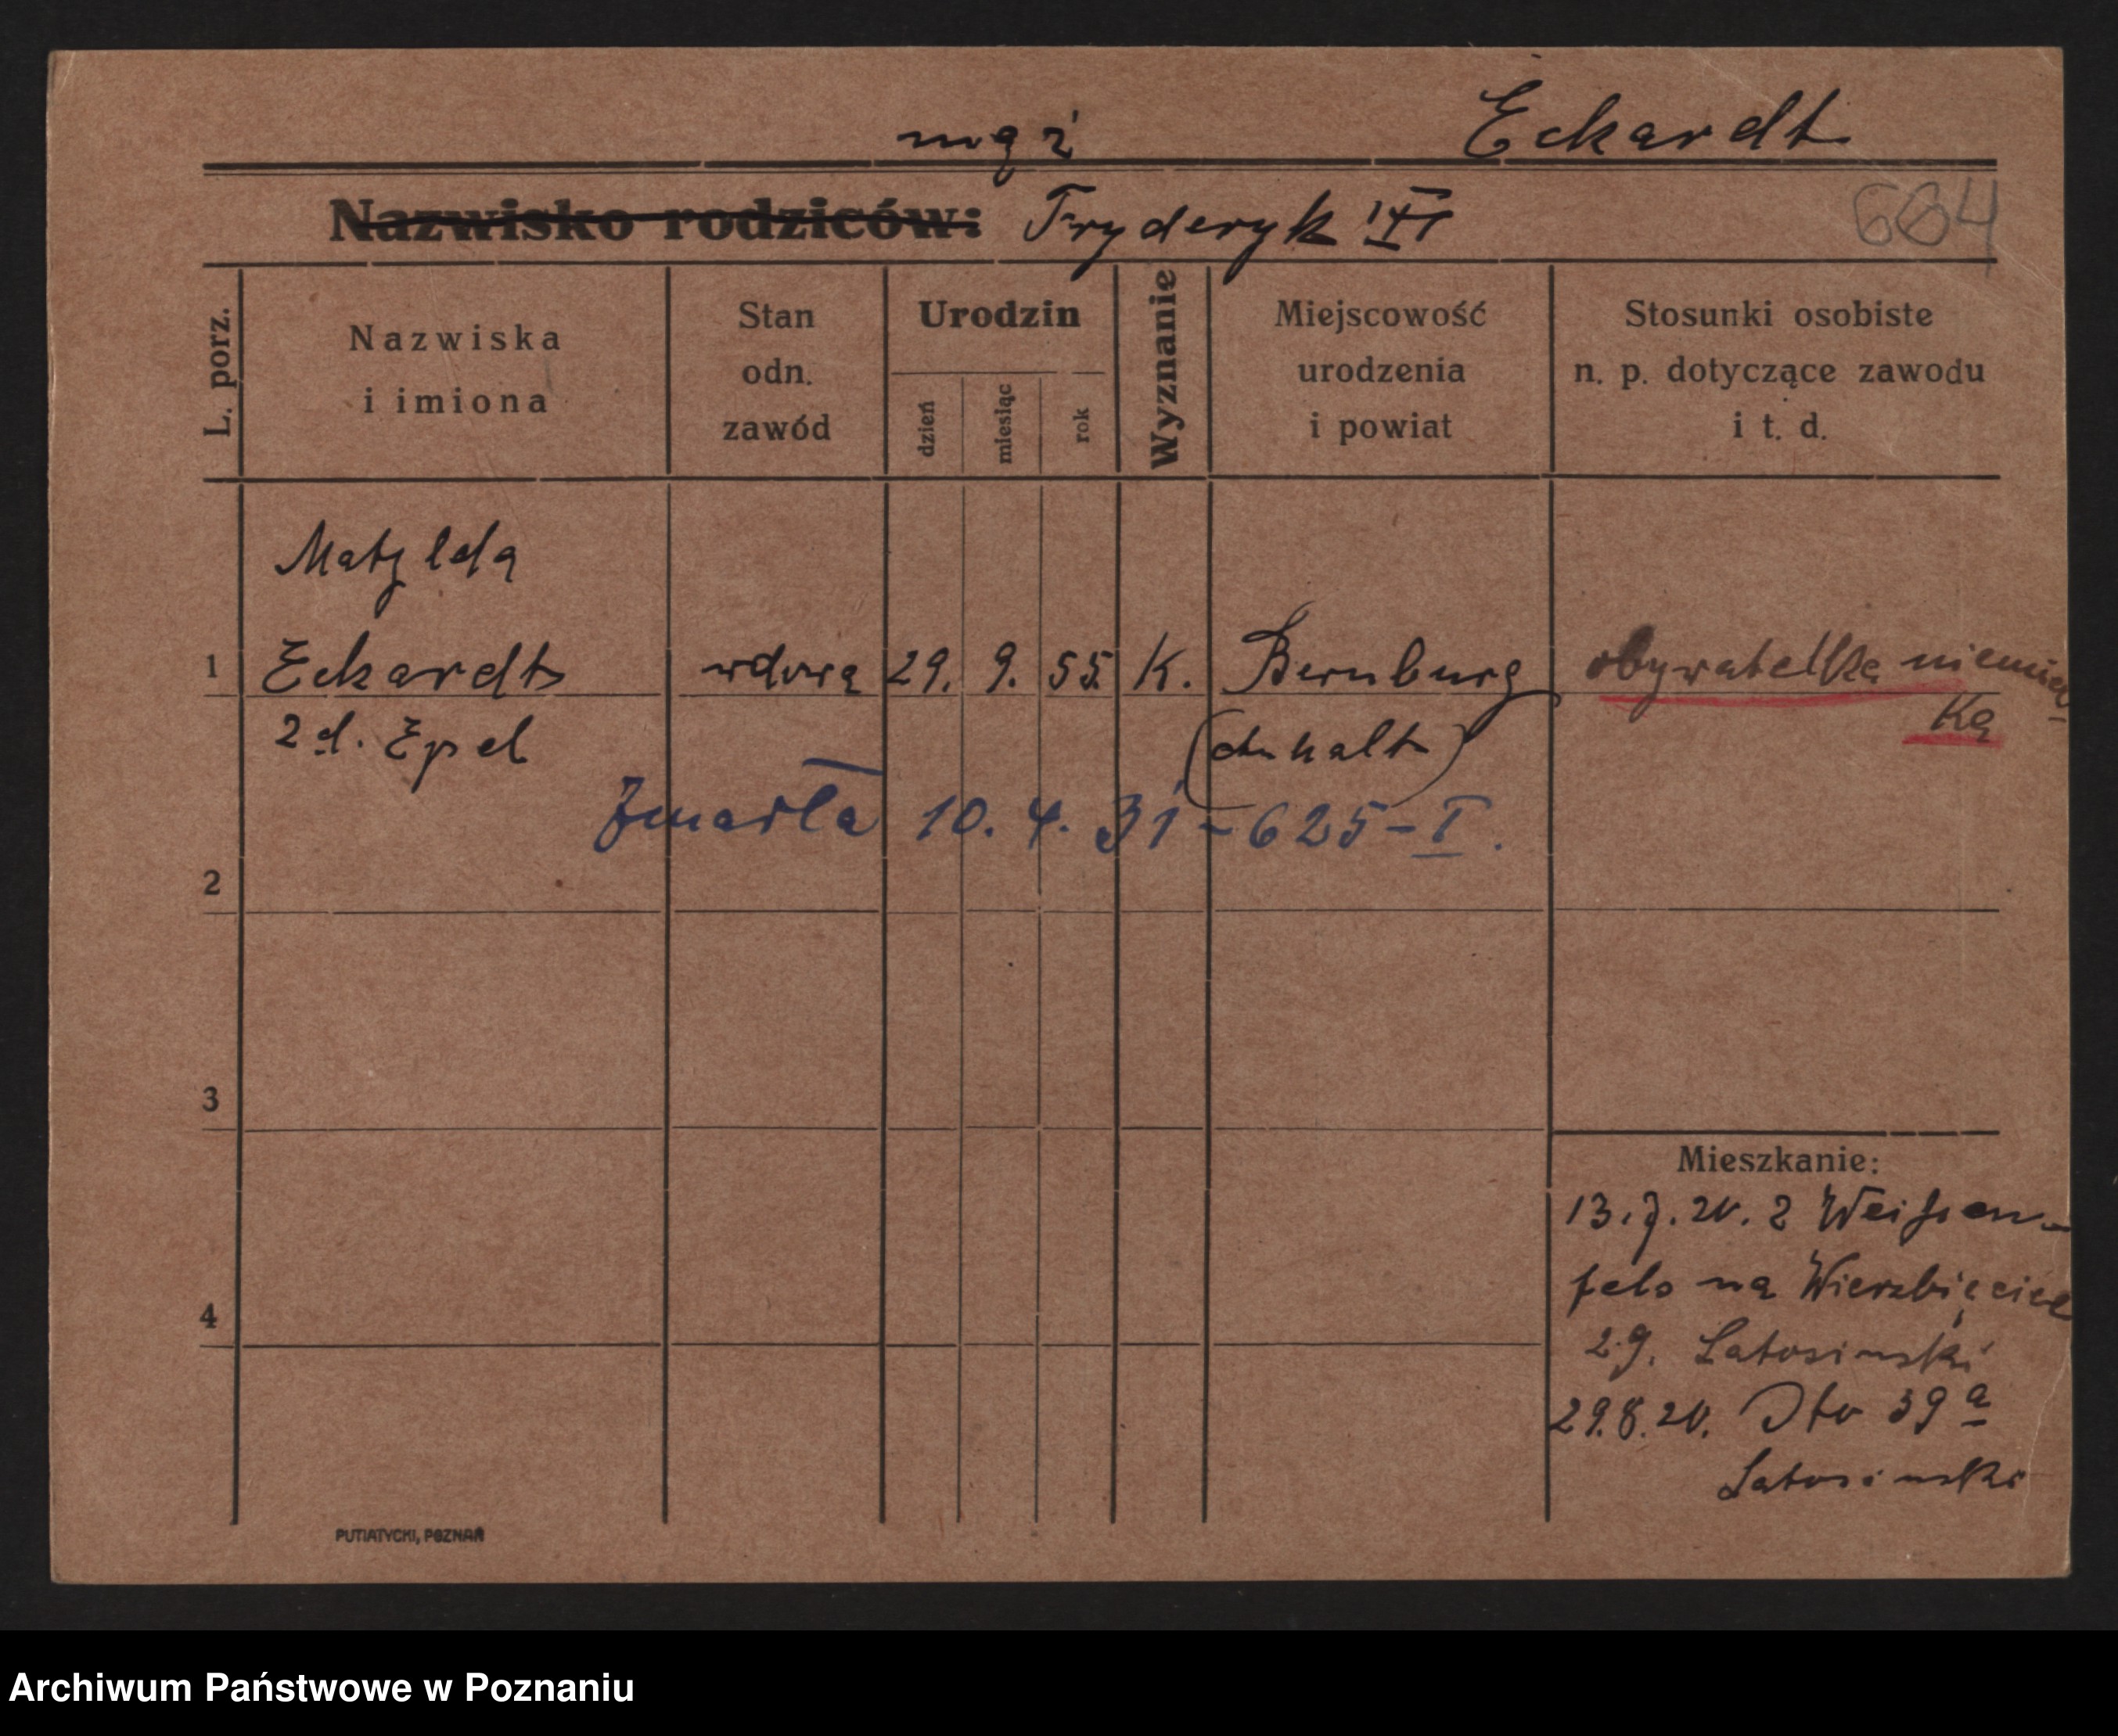 mąż Eckardt
Nazwisko rodziców: Fryderyk
684
L. porz.
Nazwiska
i imiona
Stan
odn.
zawód
Urodzin
dzień
miesiąc
rok
Wyznanie
Miejscowość
urodzenia
i powiat
Stosunki osobiste
n. p. dotyczące zawodu
i t. d.
Matylda
1 Eckardt wdowa 29. 9. 55. K. Bernburg obywatelka niemiec-
ka
zd. Epel (Anhalt)
Zmarła 10. 4. 31 - 625 - I.
2
3
4
Mieszkanie:
13.7.20. z Weißen-
fels na Wierzbięcice
29. Latosinski
29.8.20. Dto 39a
Latosinski
PUTIATYCKI, POZNAŃ
Archiwum Państwowe w Poznaniu